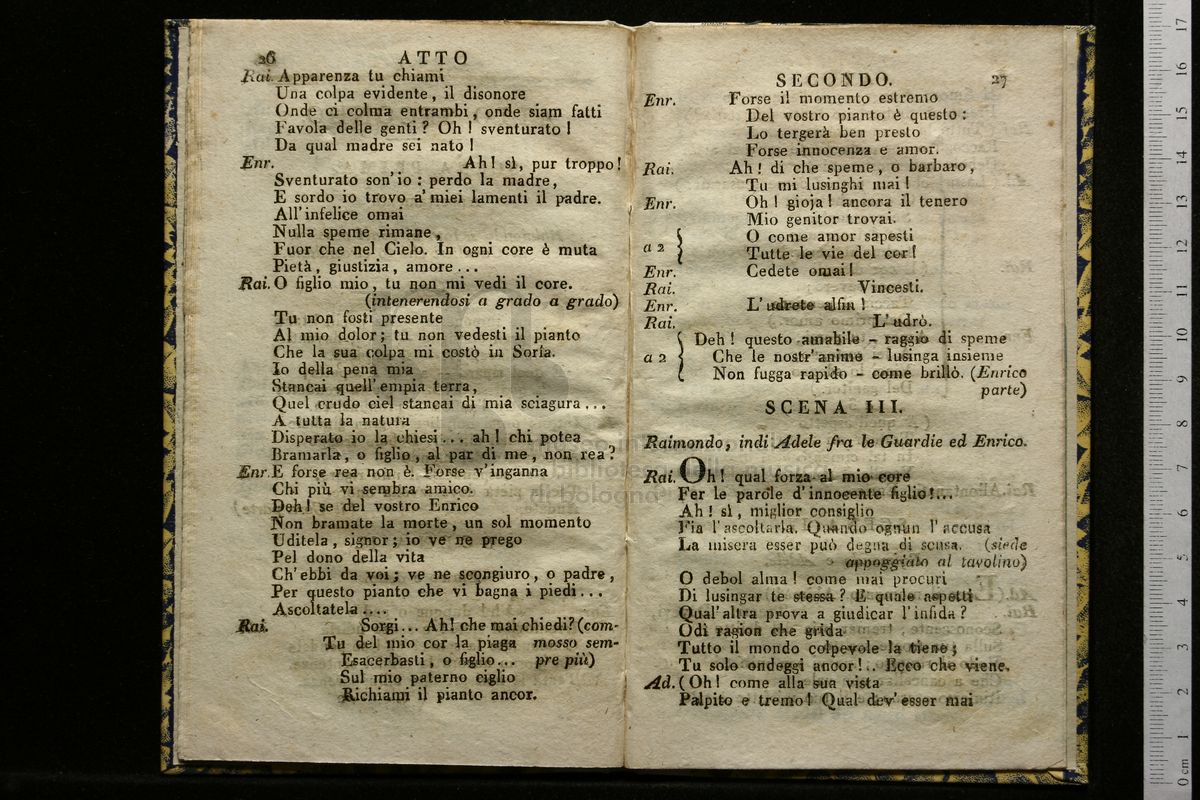 26 ATTO
Rai. Apparenza tu chiami
Una colpa evidente, il disonore
Onde ci colma entrambi, onde siam fatti
Favola delle genti? Oh! sventurato!
Da qual madre sei nato!
Enr. Ah! sì, pur troppo!
Sventurato son' io: perdo la madre,
E sordo io trovo a' miei lamenti il padre.
All' infelice omai
Nulla speme rimane,
Fuor che nel Cielo. In ogni core è muta
Pietà, giustizia, amore...
Rai. O figlio mio, tu non mi vedi il core.
(intenerendosi a grado a grado)
Tu non fosti presente
Al mio dolor; tu non vedesti il pianto
Che la sua colpa mi costò in Soria.
Io della pena mia
Stancai quell' empia terra,
Quel crudo ciel stancai di mia sciagura...
A tutta la natura
Disperato io la chiesi... ah! chi potea
Bramarla, o figlio, al par di me, non rea?
Enr. E forse rea non è. Forse v' inganna
Chi più vi sembra amico.
Deh! se del vostro Enrico
Non bramate la morte, un sol momento
Uditela, signor; io ve ne prego
Pel dono della vita
Ch' ebbi da voi; ve ne scongiuro, o padre,
Per questo pianto che vi bagna i piedi...
Ascoltatela....
Rai. Sorgi... Ah! che mai chiedi? (com-
Tu del mio cor la piaga mosso sem-
Esacerbasti, o figlio... pre più)
Sul mio paterno ciglio
Richiami il pianto ancor.
SECONDO. 27
Enr. Forse il momento estremo
Del vostro pianto è questo:
Lo tergerà ben presto
Forse innocenza e amor.
Rai. Ah! di che speme, o barbaro,
Tu mi lusinghi mai!
Enr. Oh! gioja! ancora il tenero
Mio genitor trovai.
a 2 { O come amor sapesti
Tutte le vie del cor!
Enr. Cedete omai!
Rai. Vincesti.
Enr. L' udrete alfin!
Rai. L' udrò.
Deh! questo amabile - raggio di speme
a 2 { Che le nostr' anime - lusinga insieme
Non fugga rapido - come brillò. (Enrico
parte)
SCENA III.
Raimondo, indi Adele fra le Guardie ed Enrico.
Rai. Oh! qual forza al mio core
Fer le parole d' innocente figlio!...
Ah! sì, miglior consiglio
Fia l' ascoltarla. Quando ognun l' accusa
La misera esser può degna di scusa. (siede
appoggiato al tavolino)
O debol alma! come mai procuri
Di lusingar te stessa? E quale aspetti
Qual' altra prova a giudicar l' infida?
Odi ragion che grida
Tutto il mondo colpevole la tiene;
Tu solo ondeggi ancor!.. Ecco che viene.
Ad. (Oh! come alla sua vista
Palpito e tremo! Qual dev' esser mai